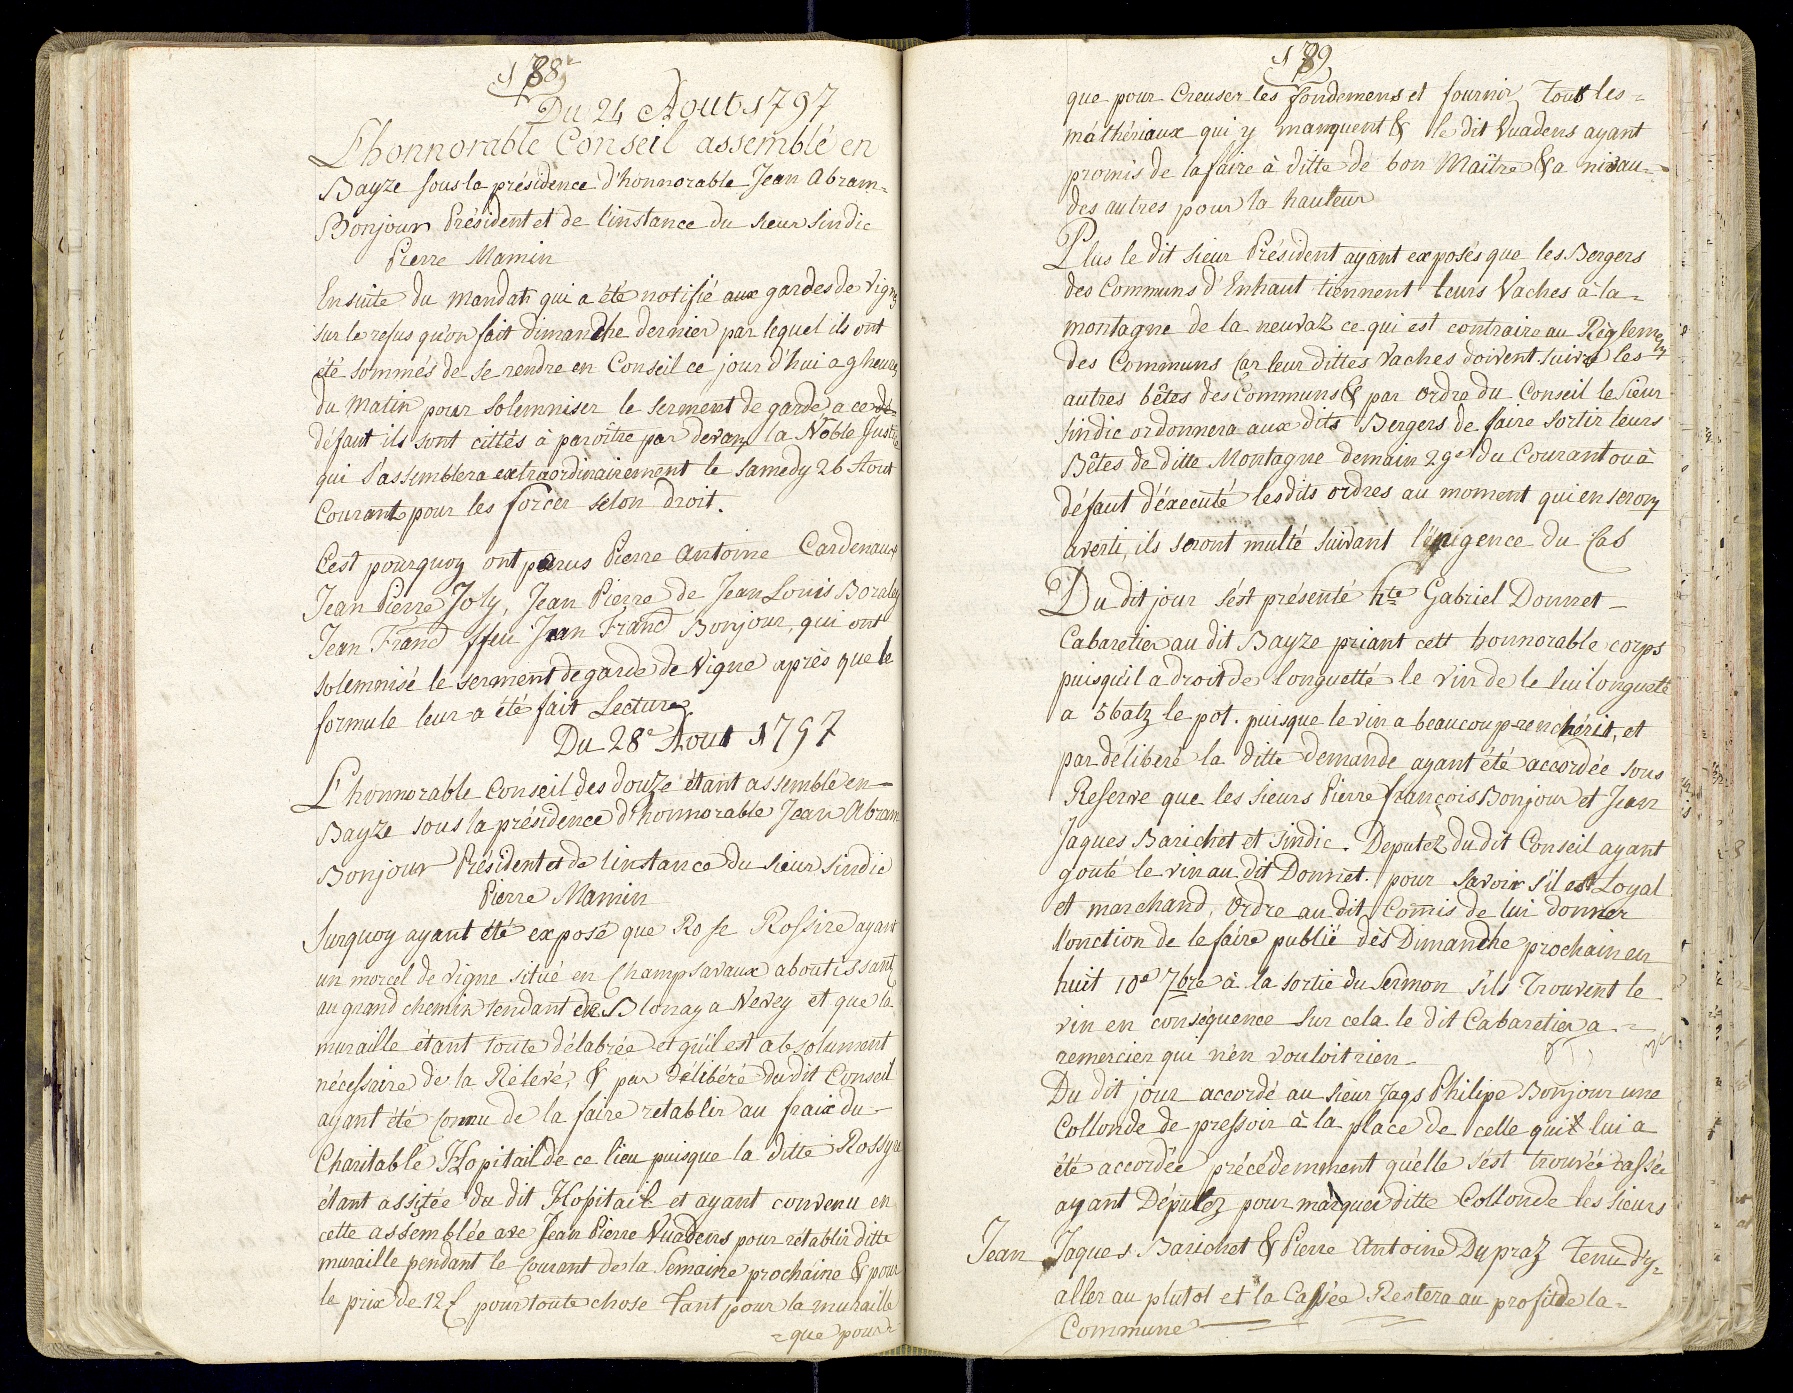 188
Du 24 Aout 1797
L'honnorable Conseil assemblé en
Bayze sous la présidence d'honnorable Jean Abram=
Bonjour Président et de l'instance du sieur sindic
Pierre Mamin
Ensuite du mandat qui a été notifié aux gardes de vigne
sur le refus qu'on fait dimanche dernier par lequel ils ont
été sommés de se rendre en Conseil ce jour d'hui a 9 heures
du Matin pour solemniser le serment de garde, a ce
défaut ils sont cittés à paroitre par devant la Noble Justice
qui s'assemblera extraordinairement le samedy 26 Aout
Courant pour les forcer selon droit.
C'est pourquoy ont parus Pierre Antoine Cardenaux
Jean Pierre Joly, Jean Pierre de Jean Louis Boraley
Jean Franc͞ ffeu Jean Franc͞ Bonjour, qui ont
solemnisé le serment de garde de Vigne après que le
formule leur a été fait Lecture
Du 28e Aout 1797
L'honnorable Conseil des douze étant assemblé en
Bayze sous la présidence d'honnorable Jean Abram
Bonjour Président et de l'instance du sieur sindic
Pierre Mamin
Surquoy ayant été exposé que Rose Rossire ayant
un morcel de vigne situé en Champsavaux aboutissant
au grand chemin tendant de Blonay a Vevey et que la
muraille étant toute délabrée et qu'il est absolument
nécessaire de la Relevé, & par délibéré du dit Conseil
ayant été connu de la faire retablir au fraix du
Charitable Hopitail de ce lieu puisque la ditte Rossyre
étant assitée du dit Hopitail et ayant convenu en
cette assemblée ave Jean Pierre Vuadens pour rétablir ditte
muraille pendant le Courant de la Semaine prochaine & pour
le prix de 12 f pour toute chose tant pour la muraille
= que pour =
189
que pour Creuser les fondemens et fournir tout les=
mathériaux qui y manquent & le dit Vuadens ayant
promis de la faire à ditte de bon Maître & a nivau=
des autres pour la hauteur
Plus le dit sieur Président ayant exposés que les Bergers
des Communs d'Enhaut tiennent leurs Vaches à la=
montagne de la neuvaz ce qui est contraire au Réglement
des Communs Car leur dittes Vaches doivent suivre les
autres bêtes des Communs & par ordre du Conseil le sieur
sindic ordonnera aux dits Bergers de faire sortir leurs
Bêtes de ditte Montagne demain 29e du Courant ou à
défaut d'éxecuté lesdits ordres au moment qui en seront
averti, ils seront multé suivant l'éxigence du Cas
Du dit jour s'est présenté hte Gabriel Donnet
Cabaretier au dit Bayze priant cett honnorable corps
puisqu'il a droit de longuetté le vin de le lui longuetté
a 5 batz le pot. puisque le vin a beaucoup renchérit, et
par délibéré la ditte demande ayant été accordée sous
Reserve que les sieurs Pierre françois Bonjour et Jean
Jaques Barichet et sindic. Deputez du dit Conseil ayant
gouté le vin au dit Donnet. pour savoir s'il est Loyal
et marchand, Ordre au dit Com̄is de lui donner
l'onction de le faire publié dès Dimanche prochain en
huit 10e 7bre à la sortie du Sermon s'ils trouvent le
vin en conséquence sur cela. le dit Cabaretier a =
remercier qui n'en vouloit rien
Du dit jour accordé au sieur Jaqs Philipe Bonjour une
Collonde de pressoir à la place de celle quil lui a
été accordée précédemment qu'elle s'est trouvée cassée
ayant Députez pour marquer ditte Collonde les sieurs
Jean Jaques Barichet & Pierre Antoine Dupraz tenu d'y=
aller au plutot et la Cassée Restera au profit de la=
Commune